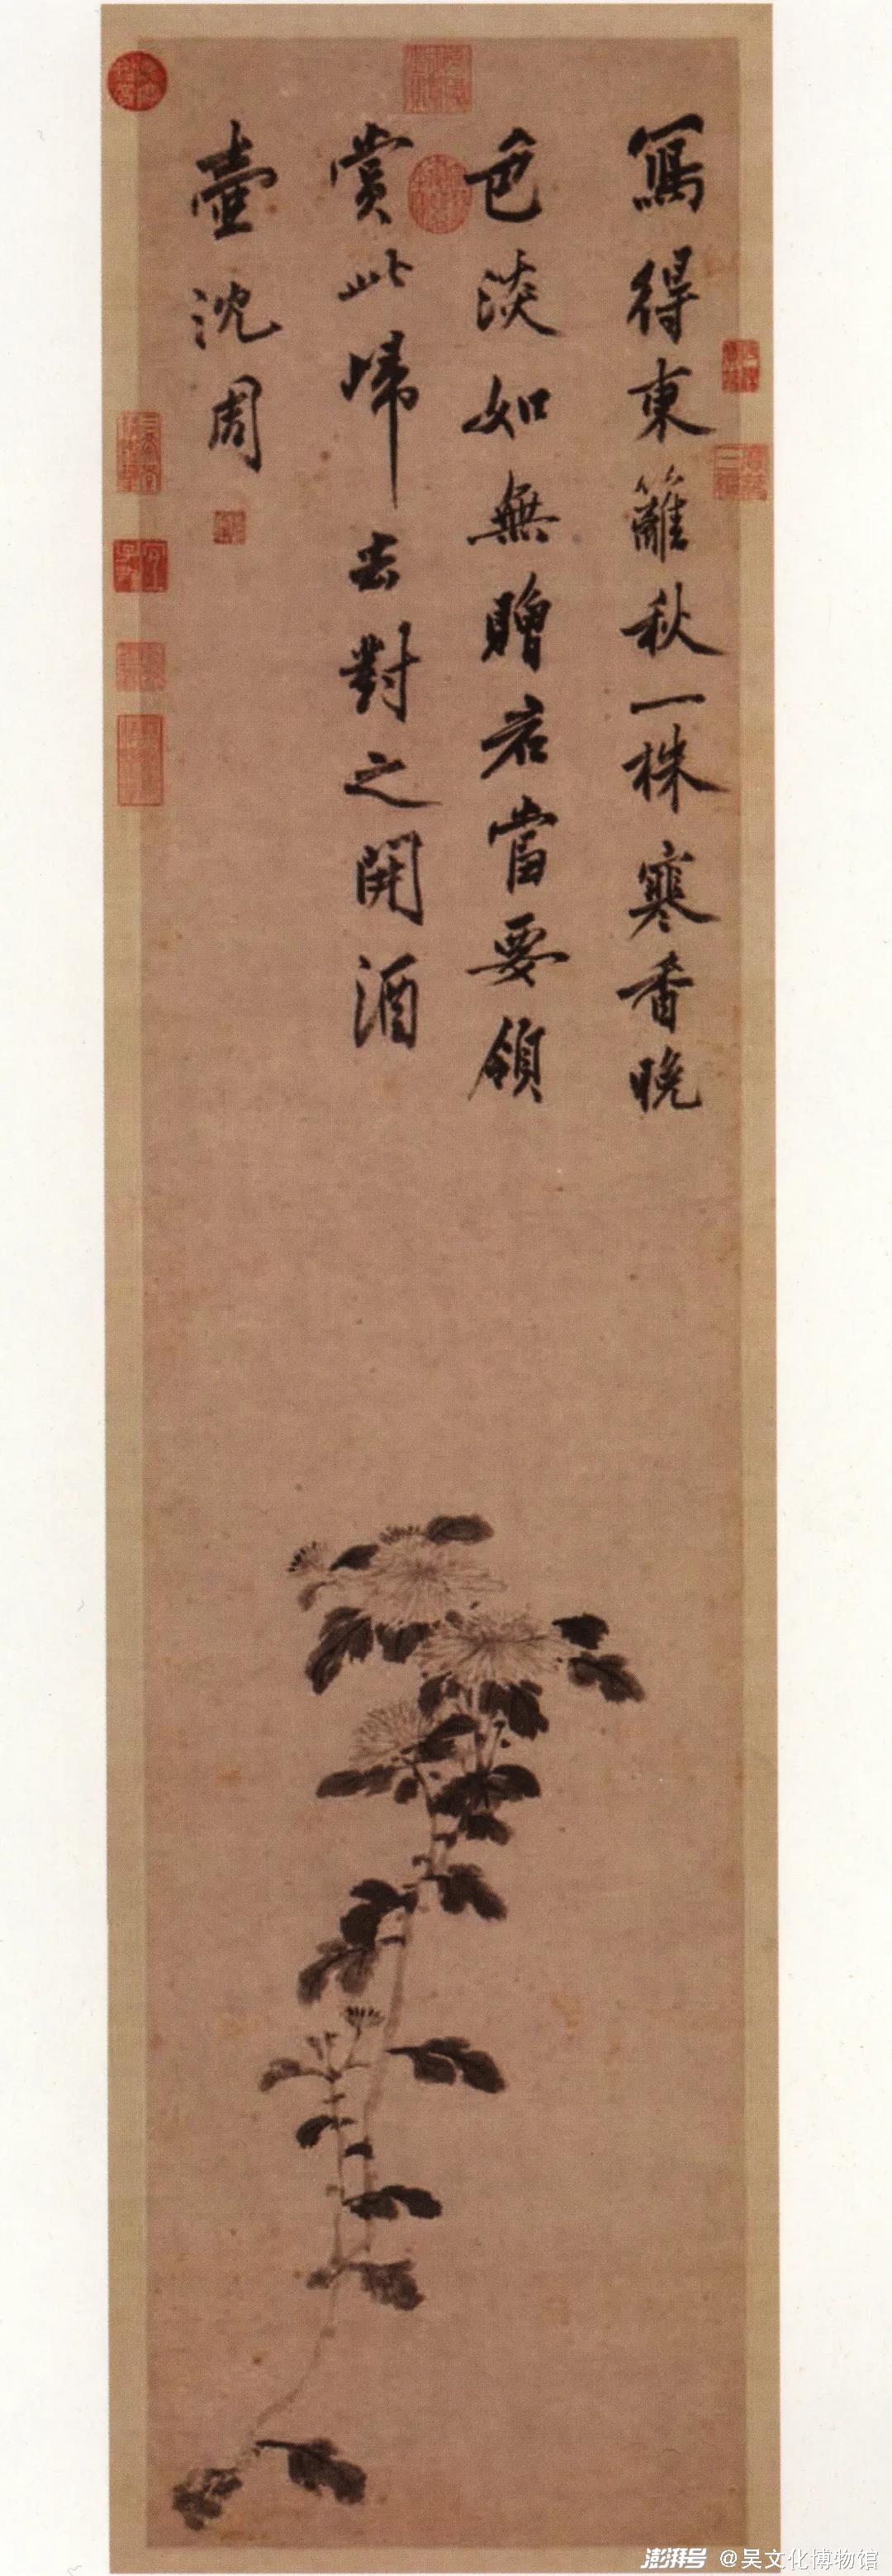 寫得東籬秋一株寒香晚
色淡如無贈君當要領
賞此歸去對之開酒
壺沈周
澎湃号 @吴文化博物馆